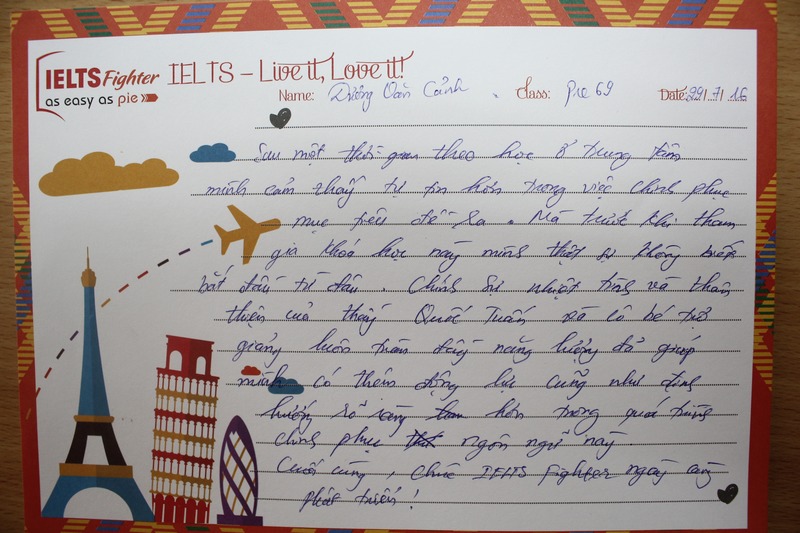 IELTS Fighter
as easy as pie
IELTS – Live it, Love it!
Name: Dương Văn Cảnh. Class: Pre 69 Date: 29/7/16
Sau một thời gian theo học ở trung tâm
mình cảm thấy tự tin hơn trong việc chinh phục
mục tiêu đề ra. Mà trước khi tham
gia khoá học này mình thật sự không biết
bắt đầu từ đâu. Chính sự nhiệt tình và thân
thiện của thầy Quốc Tuấn và cô bé trợ
giảng luôn tràn đầy năng lượng đã giúp
mình có thêm động lực cũng như định
hướng rõ ràng hơn trong quá trình
chinh phục ngôn ngữ này.
Cuối cùng, chúc IELTS Fighter ngày càng
phát triển!